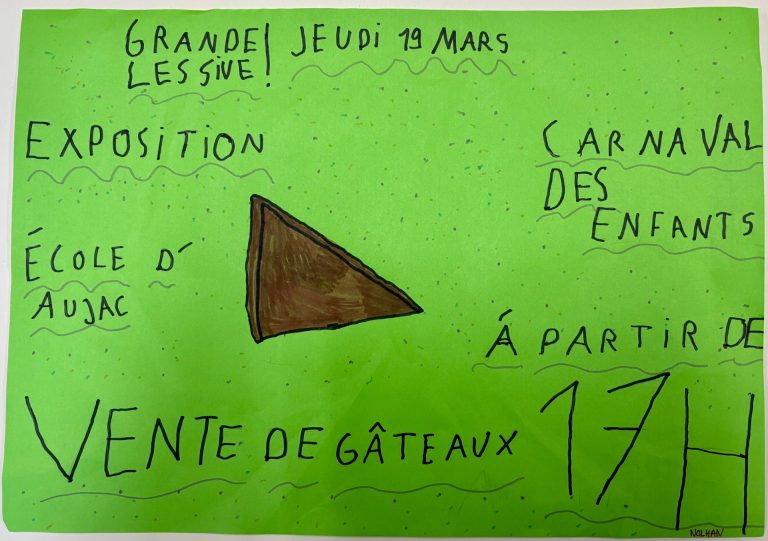 GRANDE JEUDi 19 MARS
LESSiVE!
EXPOSiTiON
CARNAVAL
DES
ENFANTS
ÉCOLE D'
AUJAC
Á PARTiR DE
17H
VENTE DE GÂTEAUX
NOLHAN